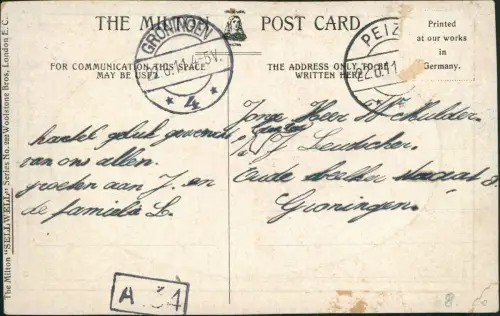 THE MILTON POST CARD
Printed
at our works
in
Germany.
FOR COMMUNICATION THIS SPACE
MAY BE USED
THE ADDRESS ONLY TO BE
WRITTEN HERE
The Milton "SELLWELL" Series No. Woolstone Bros, London E.C.
GRONINGEN
4-5V.
4
PEIZ
hartel. geluk gewenscht
van ons allen.
groeten aan J. en
de familie L.
Jonge Heer W Mulder
Leutscher
Oude straat 8
Groningen.
A 31
8.